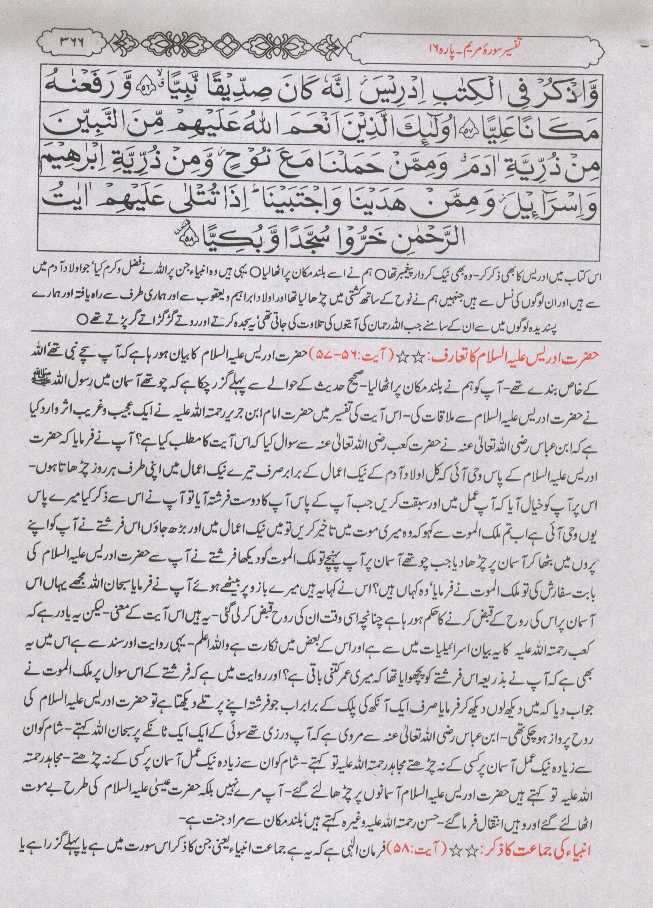 تفسیر سورۂ مریم۔ پارہ ۱۶
۳۶۶
وَاذْكُرْ فِي الْكِتٰبِ اِدْرِيْسَ اِنَّهٗ كَانَ صِدِّيْقًا نَّبِيًّا ۵۶ وَّ رَفَعْنٰهُ
مَكَانًا عَلِيًّا ۵۷ اُولٰٓئِكَ الَّذِيْنَ اَنْعَمَ اللّٰهُ عَلَيْهِمْ مِّنَ النَّبِيّٖنَ
مِنْ ذُرِّيَّةِ اٰدَمَ وَمِمَّنْ حَمَلْنَا مَعَ نُوْحٍ وَّمِنْ ذُرِّيَّةِ اِبْرٰهِيْمَ
وَاِسْرَآءِيْلَ وَمِمَّنْ هَدَيْنَا وَاجْتَبَيْنَا ؕ اِذَا تُتْلٰى عَلَيْهِمْ اٰيٰتُ
الرَّحْمٰنِ خَرُّوْا سُجَّدًا وَّبُكِيًّا ۵۸
اس کتاب میں ادریس کا بھی ذکر کر۔ وہ بھی نیک کردار پیغمبر تھا ○ ہم نے اسے بلند مکان پر اٹھا لیا ○ یہی ہیں وہ انبیاء جن پر اللہ نے فضل و کرم کیا' جو اولاد آدم میں
سے ہیں اور ان لوگوں کی نسل سے ہیں جنہیں ہم نے نوح کے ساتھ کشتی میں چڑھا لیا تھا اور اولاد ابراہیم و یعقوب سے اور ہماری طرف سے راہ یافتہ اور ہمارے
پسندیدہ لوگوں میں سے ان کے سامنے جب اللہ رحمان کی آیتوں کی تلاوت کی جاتی تھی' یہ سجدہ کرتے اور روتے گڑگڑاتے گر پڑتے تھے ○
حضرت ادریس علیہ السلام کا تعارف: ☆☆ (آیت:۵۶-۵۷) حضرت ادریس علیہ السلام کا بیان ہو رہا ہے کہ آپ سچے نبی تھے' اللہ
کے خاص بندے تھے۔ آپ کو ہم نے بلند مکان پر اٹھا لیا۔ صحیح حدیث کے حوالے سے پہلے گزر چکا ہے کہ چوتھے آسمان میں رسول اللہ ﷺ
نے حضرت ادریس علیہ السلام سے ملاقات کی۔ اس آیت کی تفسیر میں حضرت امام ابن جریر رحمتہ اللہ علیہ نے ایک عجیب و غریب اثر وارد کیا
ہے کہ ابن عباس رضی اللہ تعالیٰ عنہ نے حضرت کعب رضی اللہ تعالیٰ عنہ سے سوال کیا کہ اس آیت کا مطلب کیا ہے؟ آپ نے فرمایا کہ حضرت
ادریس علیہ السلام کے پاس وحی آئی کہ کل اولاد آدم کے نیک اعمال کے برابر صرف تیرے نیک اعمال میں اپنی طرف ہر روز چڑھاتا ہوں۔
اس پر آپ کو خیال آیا کہ آپ عمل میں اور سبقت کریں جب آپ کے پاس آپ کا دوست فرشتہ آیا تو آپ نے اس سے ذکر کیا میرے پاس
یوں وحی آئی ہے اب تم ملک الموت سے کہو کہ وہ میری موت میں تاخیر کریں تو میں نیک اعمال میں اور بڑھ جاؤں اس فرشتے نے آپ کو اپنے
پروں میں بٹھا کر آسمان پر چڑھا دیا جب چوتھے آسمان پر آپ پہنچے تو ملک الموت کو دیکھا فرشتے نے آپ سے حضرت ادریس علیہ السلام کی
بابت سفارش کی تو ملک الموت نے فرمایا' وہ کہاں ہیں؟ اس نے کہا یہ ہیں میرے بازو پر بیٹھے ہوئے آپ نے فرمایا سبحان اللہ مجھے یہاں اس
آسمان پر اس کی روح کے قبض کرنے کا حکم ہو رہا ہے چنانچہ اسی وقت ان کی روح قبض کر لی گئی۔ یہ ہیں اس آیت کے معنی۔ لیکن یہ یاد رہے کہ
کعب رحمتہ اللہ علیہ کا یہ بیان اسرائیلیات میں سے ہے اور اس کے بعض میں نکارت ہے واللہ اعلم۔ یہی روایت اور سند سے ہے اس میں یہ
بھی ہے کہ آپ نے بذریعہ اس فرشتے کو پچھوایا تھا کہ میری عمر کتنی باقی ہے؟ اور روایت میں ہے کہ فرشتے کے اس سوال پر ملک الموت نے
جواب دیا کہ میں دیکھ لوں دیکھ کر فرمایا صرف ایک آنکھ کی پلک کے برابر اب جو فرشتہ اپنے پر تلے دیکھتا ہے تو حضرت ادریس علیہ السلام کی
روح پرواز ہو چکی تھی۔ ابن عباس رضی اللہ تعالیٰ عنہ سے مروی ہے کہ آپ درزی تھے سوئی کے ایک ایک ٹانکے پر سبحان اللہ کہتے۔ شام کو ان
سے زیادہ نیک عمل آسمان پر کسی کے نہ چڑھتے مجاہد رحمتہ اللہ علیہ تو کہتے۔ شام کو ان سے زیادہ نیک عمل آسمان پر کسی کے نہ چڑھتے۔ مجاہد رحمتہ
اللہ علیہ تو کہتے ہیں حضرت ادریس علیہ السلام آسمانوں پر چڑھا لئے گئے۔ آپ مرے نہیں بلکہ حضرت عیسیٰ علیہ السلام کی طرح بے موت
اٹھا لئے گئے اور وہیں انتقال فرما گئے۔ حسن رحمتہ اللہ علیہ وغیرہ کہتے ہیں' بلند مکان سے مراد جنت ہے۔
انبیاء کی جماعت کا ذکر: ☆☆ (آیت:۵۸) فرمان الٰہی ہے کہ یہ ہے جماعت انبیاء یعنی جن کا ذکر اس سورت میں ہے یا پہلے گزرا ہے یا